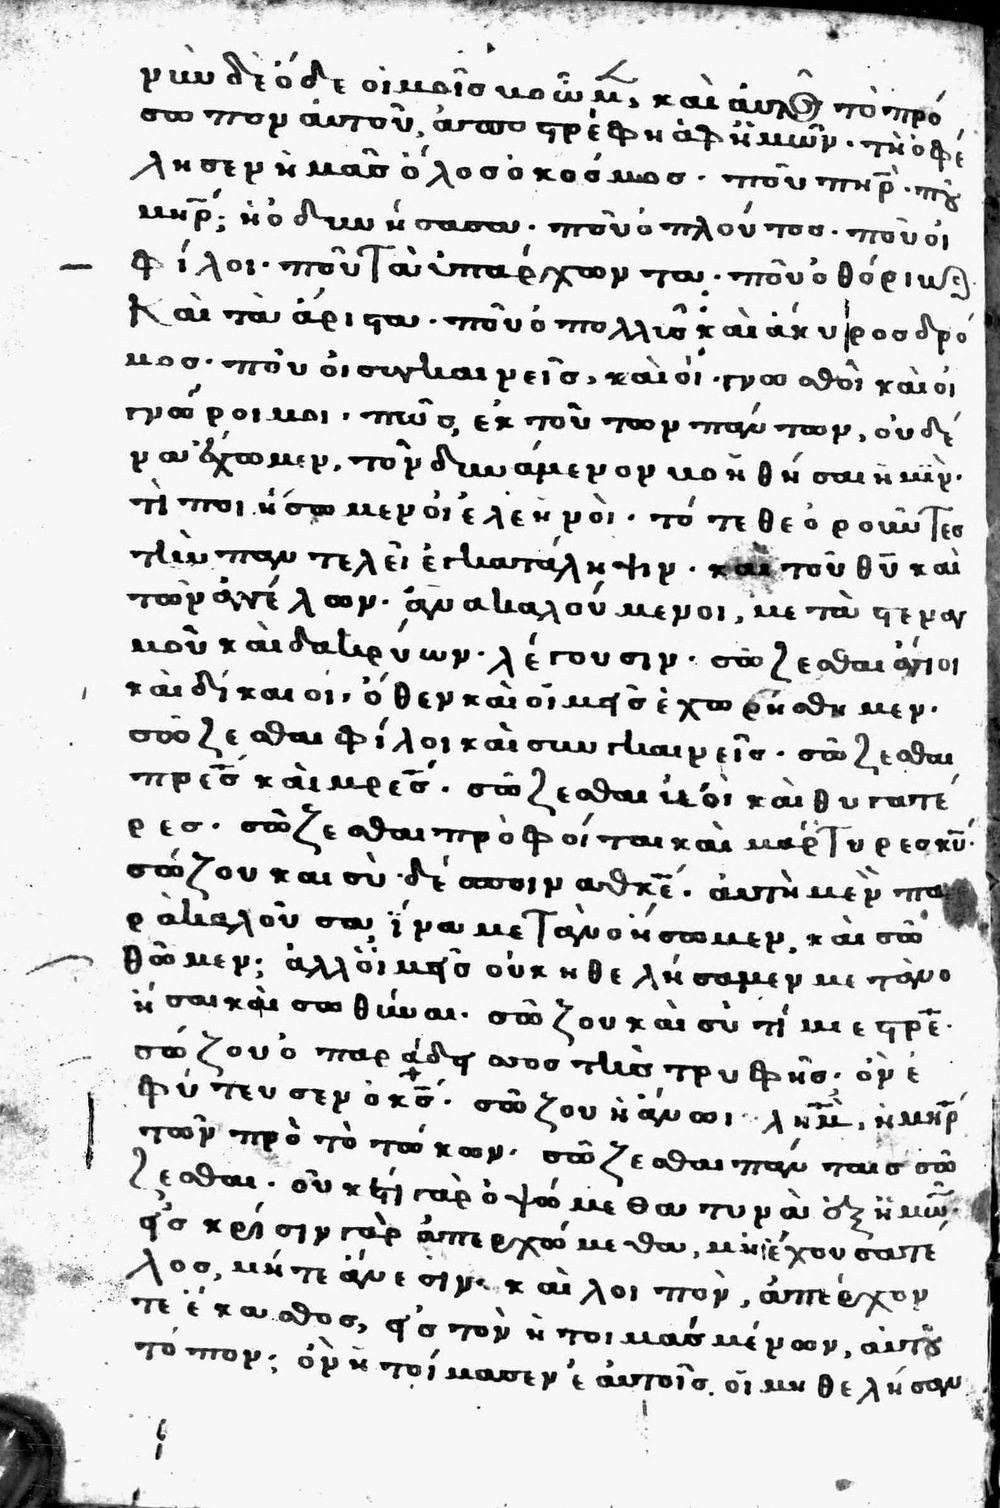 νῦν δὲ ὅδε οἱμοῖσ κρῶμ, καὶ αὐτὸσ τὸ πρό
σωπον αὐτοῦ, ἀποστρέφη ἀφ ἡμῶν. τὴ ὀφέ
λησεν ἡμᾶσ ὅλοσ ὁ κόσμοσ. ποῦ πηρ̅. ποῦ
μηρ̅; ἡ ὀδυνήσασα. ποῦ ὁ πλούτοσ. ποῦ οἱ
φίλοι. ποῦ τὰ ὑπάρχωντα. ποῦ ὁ θόριβοσ
Καὶ τὰ ἄριστα. ποῦ ὁ πολλῖσ καὶ ἄκυροσ δρό
μοσ. ποῦ οἱ συγκαιρεῖσ, καὶ οἱ γνωσθοὶ καὶ οἱ
γνώροιμοι. πῶσ, ἐκ τούτων πάντων, οὐδέ
να ἔχωμεν, τὸν δυνάμενον βοηθήσαι ἡμῖν.
τὶ ποιήσωμεν οἱ ἐλεηνοὶ. τότε θεοροῦντεσ
τὴν παντελεῖ ἐγκατάληψιν. καὶ τοῦ θ̅υ̅ καὶ
τῶν ἀγγέλων. ἀνακαλούμενοι, μετὰ στεναγ
μοῦ καὶ δακρύων. λέγουσιν. σῶζεσθαι ἅγιοι
καὶ δίκαιοι, ὅθεν καὶ οἱμεῖσ ἐχωρήσθημεν.
σῶζεσθαι φίλοι καὶ συγκαιρεῖσ. σῶζεσθαι
πρεσ̅ καὶ μρεσ̅. σῶζεσθαι ὑεοὶ καὶ θυγατέ
ρεσ. σῶζεσθαι πρόφοίται καὶ μάρτυρεσ κ̅υ̅.
σώζου και σὺ δέσποινα θκε̅. αὐτὴ μὲν πα
ρακαλοῦσα, ἵνα μετανοήσωμεν, καὶ σω
θῶμεν; ἀλλ οἱμεῖσ οὐκ ηθελήσαμεν μετανο
ήσαι καὶ σωθῆναι. σῶζου καὶ σὺ τίμιε στρε̅.
σώζου ὁ παράδεισοσ τῆσ τρυφῆσ. ὃν ἐ
φύτευσεν ὁ κ̅σ̅. σῶζου ἡ ἄνωι λημ̅, ἡ μηρ̅
τῶν πρὸτοτώκων. σῶζεσθαι πάντασ σῶ
ζεσθαι. οὐκέτι γὰρ ὀψώμεθα τυνὰ ἐξ ἡμῶν.
εἰσ κρίσιν γὰρ ἀπερχώμεθα, μὴ ἔχουσα τέ
λοσ, μήτε ἄνεσιν. καὶ λοιπὸν, ἀπέρχον
τε ἕκασθοσ, εἰσ τὸν ἡτοιμασμένων, αὐτοῦ
τόπον; ὃν ἡτοίμασεν ἑαυτοῖσ. οἱ μη θελήσαν